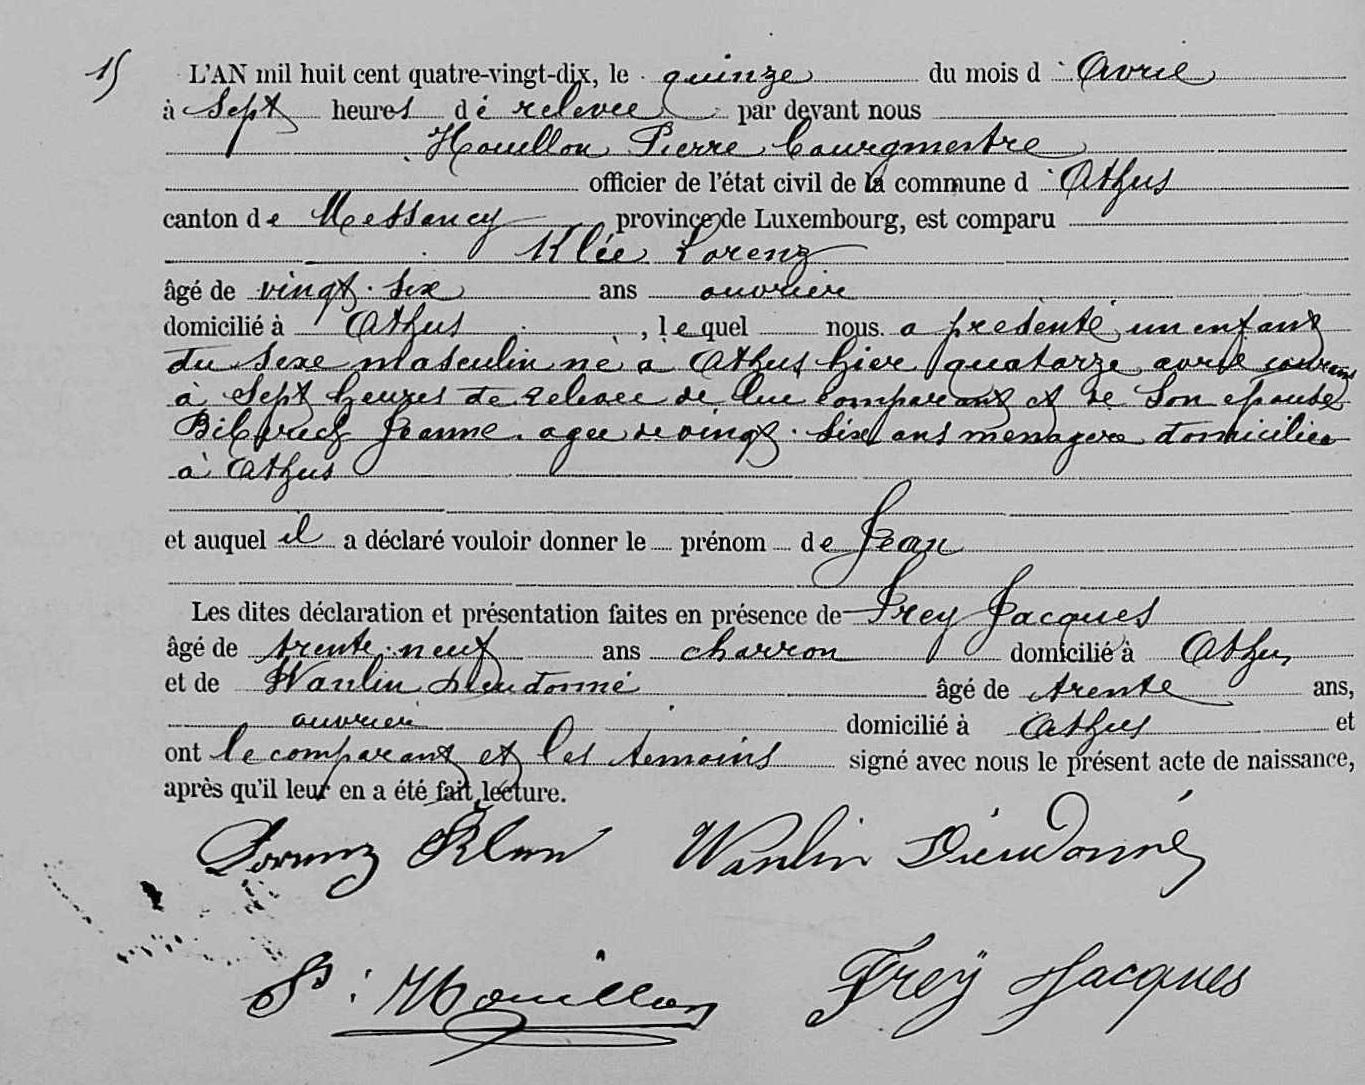 15
L'AN mil huit cent quatre-vingt-dix, le quinze du mois d'Avril
à Sept heures de relevée par devant nous
Houillon Pierre bourgmestre
officier de l'état civil de la commune d'Athus
canton de Messancy province de Luxembourg, est comparu
Klée Lorenz
âgé de vingt-six ans ouvrier
domicilié à Athus, lequel nous a présenté un enfant
du sexe masculin né à Athus hier quatorze avril courant
à Sept heures de relevée de lui comparant et de Son épouse
Jeanne agée de vingt-six ans menagère domiciliée
à Athus
et auquel il a déclaré vouloir donner le prénom de Jean
Les dites déclaration et présentation faites en présence de Frey Jacques
âgé de trente-neuf ans charron domicilié à Athus
et de Wanlin Dieudonné âgé de trente ans,
ouvrier domicilié à Athus et
ont le comparant et les témoins signé avec nous le présent acte de naissance,
après qu'il leur en a été fait lecture.
Lorenz Wanlin Dieudonné
P. Houillon Frey Jacques